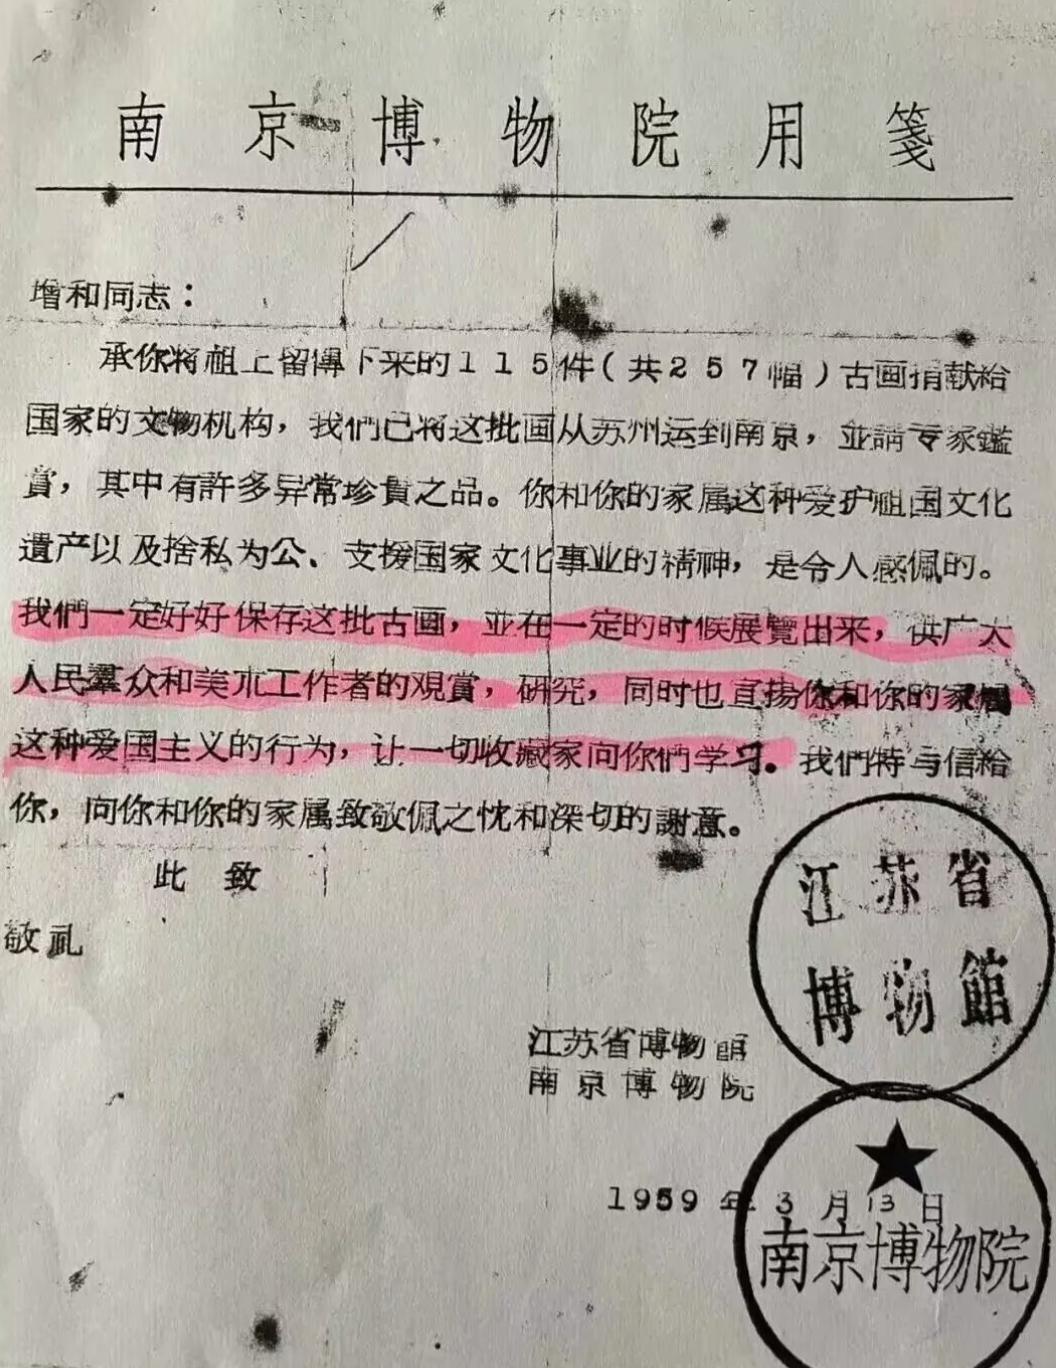 南京博物院用箋
增和同志：
承你将祖上留傳下来的115件(共257幅)古画捐献給
国家的文物机构，我們已将这批画从苏州运到南京，並請专家鑑
賞，其中有許多异常珍貴之品。你和你的家属这种爱护祖国文化
遺产以及捨私为公、支援国家文化事业的精神，是令人感佩的。
我們一定好好保存这批古画，並在一定的时候展覽出来，供广大
人民羣众和美朮工作者的观賞，研究，同时也直扬你和你的家属
这种爱国主义的行为，让一切收藏家向你們学习。我們特与信給
你，向你和你的家属致敬佩之忱和深切的謝意。
此致
敬礼
江苏省博物館
南京博物院
1959年3月13日
江苏省
博物館
南京博物院